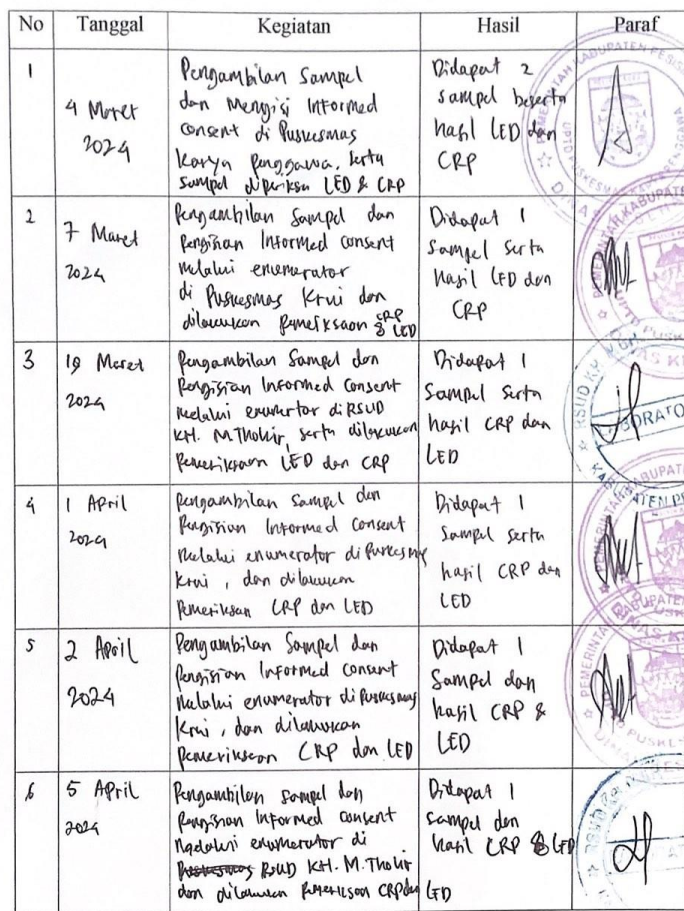 No Tanggal Kegiatan Hasil Paraf
1
4 Maret
2024
Pengambilan Sampel
dan Mengisi Informed
consent di Puskesmas
Karya Penggawa, serta
Sampel diperiksa LED & CRP
Didapat 2
sampel beserta
hasil LED dan
CRP
2
7 Maret
2024
Pengambilan Sampel dan
Pengisian Informed consent
melalui enumerator
di Puskesmas Krui dan
dilakukan Pemeriksaan CRP & LED
Didapat 1
Sampel serta
hasil LED dan
CRP
3
19 Maret
2024
Pengambilan Sampel dan
Pengisian Informed Consent
melalui enumertor di RSUD
KH. M. Thohir, serta dilakukan
Pemeriksaan LED dan CRP
Didapat 1
Sampel serta
hasil CRP dan
LED
4
1 April
2024
Pengambilan Sampel dan
Pengisian Informed Consent
melalui enumerator di Puskesmas
Krui, dan dilakukan
Pemeriksan CRP dan LED
Didapat 1
Sampel serta
hasil CRP dan
LED
5
2 April
2024
Pengambilan Sampel dan
Pengisian Informed Consent
melalui enumerator di Puskesmas
Krui, dan dilakukan
Pemeriksaan CRP dan LED
Didapat 1
Sampel dan
hasil CRP &
LED
6
5 April
2024
Pengambilan Sampel dan
Pengisian Informed Consent
melalui enumerator di
RSUD KH. M. Thohir
dan dilakukan Pemeriksaan CRP dan LED
Didapat 1
sampel dan
hasil CRP & LED